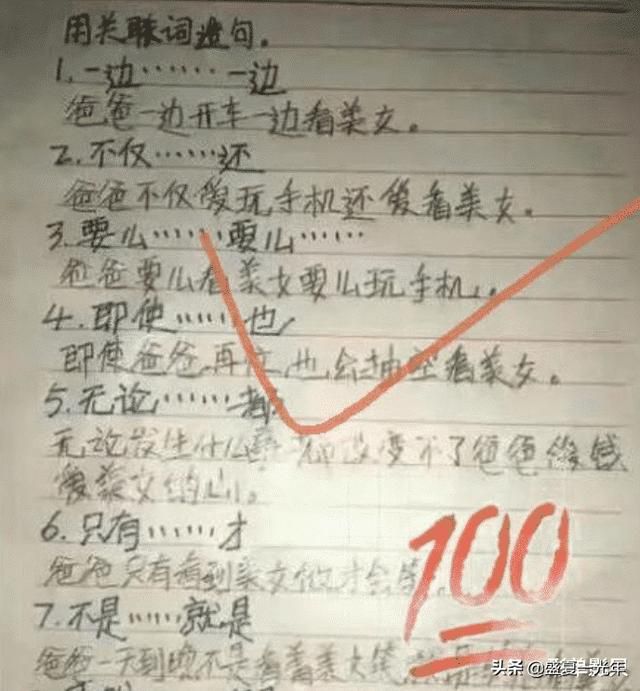 用关联词造句。
1.一边……一边
爸爸一边开车一边看美女。
2.不仅……还
爸爸不仅爱玩手机还爱看美女。
3.要么……要么……
爸爸要么看美女要么玩手机。
4.即使……也
即使爸爸再忙,也会抽空看美女。
5.无论……都
无论发生什么事都改变不了爸爸爱钱
爱美女的心。
6.只有……才
爸爸只有看到美女他才会笑
7.不是……就是
爸爸一天到晚不是看着美女笑,就是
100
头条@盛夏光年